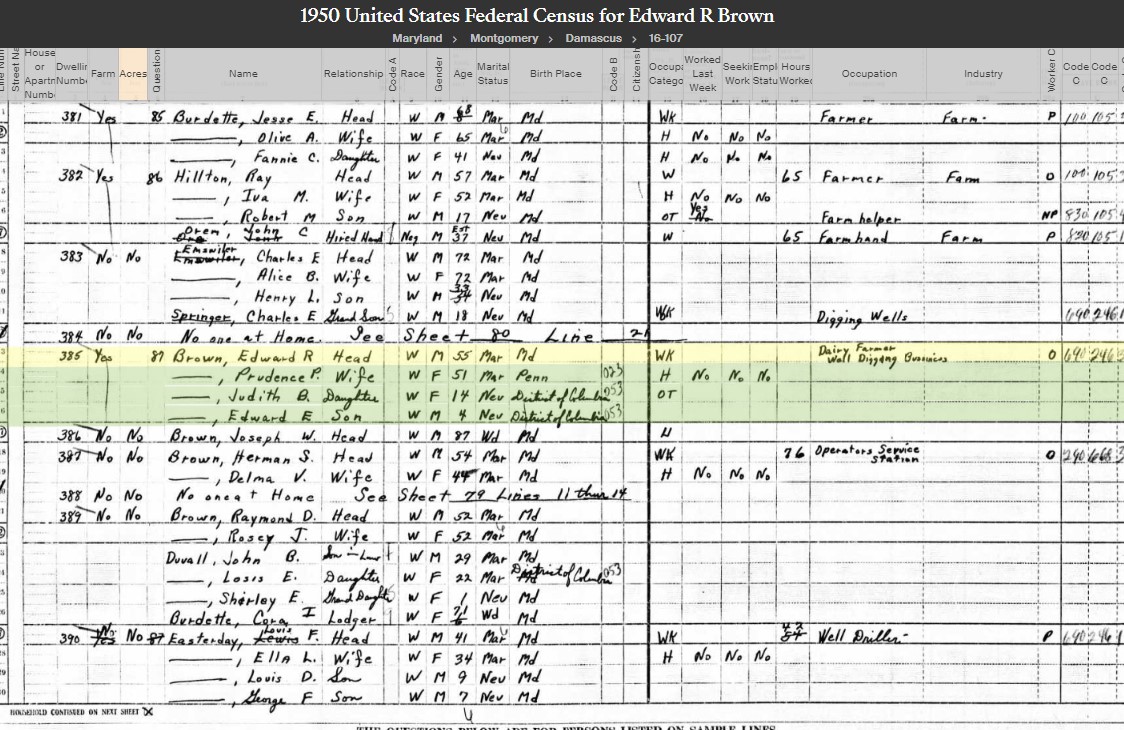 1950 United States Federal Census for Edward R Brown
Maryland > Montgomery > Damascus > 16-107
House or Apartm Numbe Dwellin Numbe Farm Acres Question Name Relationship Code A Race Gender Age Marital Status Birth Place Code B Citizensh Occupa Catego Worked Last Week Seekin Work Empl Statu Hours Worked Occupation Industry Worker C Code C Code O
381 Yes 85 Burdette, Jesse E. Head W M 68 Mar Md WK Farmer Farm P 100 105
——, Olive A. Wife W F 65 Mar Md H No No No
——, Fannie C. Daughter W F 41 Nev Md H No No No
382 Yes 86 Hillton, Ray Head W M 57 Mar Md W 65 Farmer Farm O 100 105
——, Iva M. Wife W F 52 Mar Md H No No No
——, Robert M Son W M 17 Nev Md OT Yes No Farm helper NP 830 105
Orem, John C Hired Hand Neg M Est 37 Nev Md W 65 Farmhand Farm P 820 105
383 No No Emswiler, Charles E Head W M 72 Mar Md
——, Alice B. Wife W F 72 Mar Md
——, Henry L. Son W M 34 Nev Md
Springer, Charles E Grand Son W M 18 Nev Md WK Digging Wells 690 246
384 No No No one at Home. See Sheet 80 Line 21
385 Yes 87 Brown, Edward R Head W M 55 Mar Md WK Dairy Farmer Well Digging Business O 690 246
——, Prudence P. Wife W F 51 Mar Penn 023 H No No No
——, Judith B. Daughter W F 14 Nev District of Columbia 053 OT
——, Edward E Son W M 4 Nev District of Columbia 053
386 No No Brown, Joseph W. Head W M 87 Wd Md U
387 No No Brown, Herman S. Head W M 54 Mar Md WK 76 Operators Service Station O 290
——, Delma V. Wife W F 44 Mar Md H No No No
388 No No No one at Home See Sheet 79 Lines 11 thur 14
389 No No Brown, Raymond D. Head W M 52 Mar Md
——, Rosey J. Wife W F 52 Mar Md
Duvall, John B. Son-in-Law W M 29 Mar Md
——, Losis E. Daughter W F 22 Mar Md District of Columbia 053
——, Shirley E. Grand Daughter W F 1 Nev Md
Burdette, Cora I Lodger W F 71 Wd Md
390 No Yes No 87 Easterday, Louis Lewis F. Head W M 41 Mar Md WK 42 54 Well Driller P 690 246
——, Ella L. Wife W F 34 Mar Md H No No No
——, Louis D. Son W M 9 Nev Md
——, George F Son W M 7 Nev Md
HOUSEHOLD CONTINUED ON NEXT SHEET X
THE QUESTIONS BELOW ARE FOR PERSONS LISTED ON SAMPLE LINES